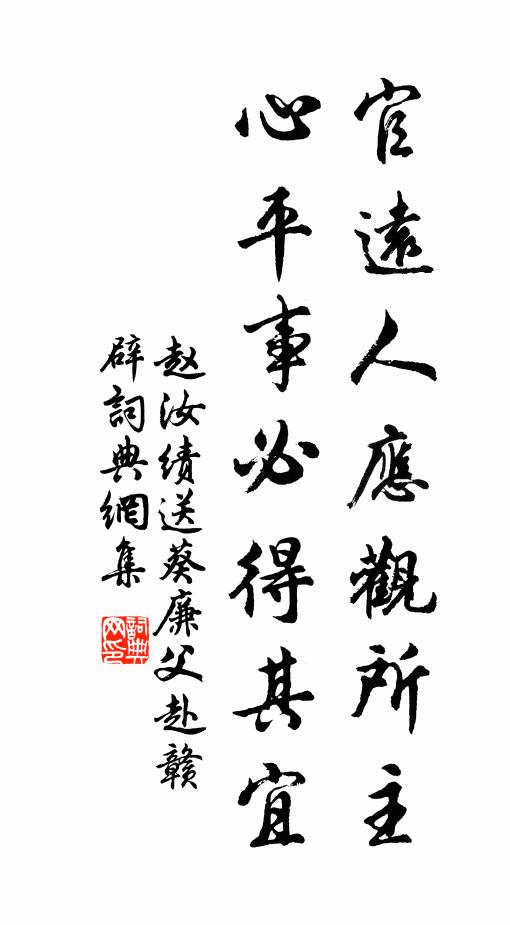 官遠人應觀所主
心平事必得其宜
赵汝绩送葵廉父赴赣
辟詞典網集
詞典网印